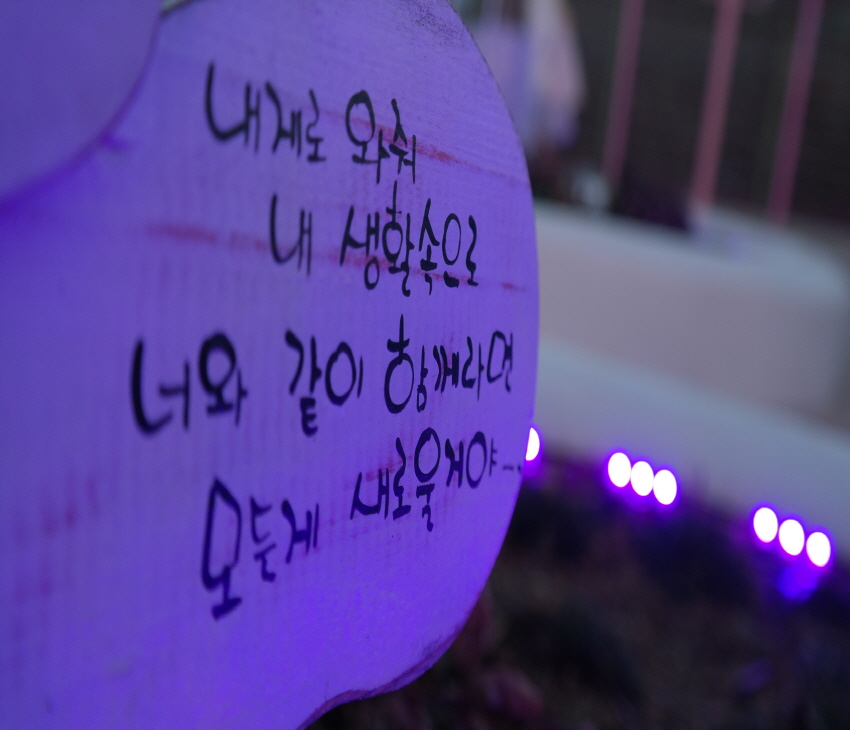 내게로 와줘
내 생활속으로
너와 같이 함께라면
모든게 새로울거야...